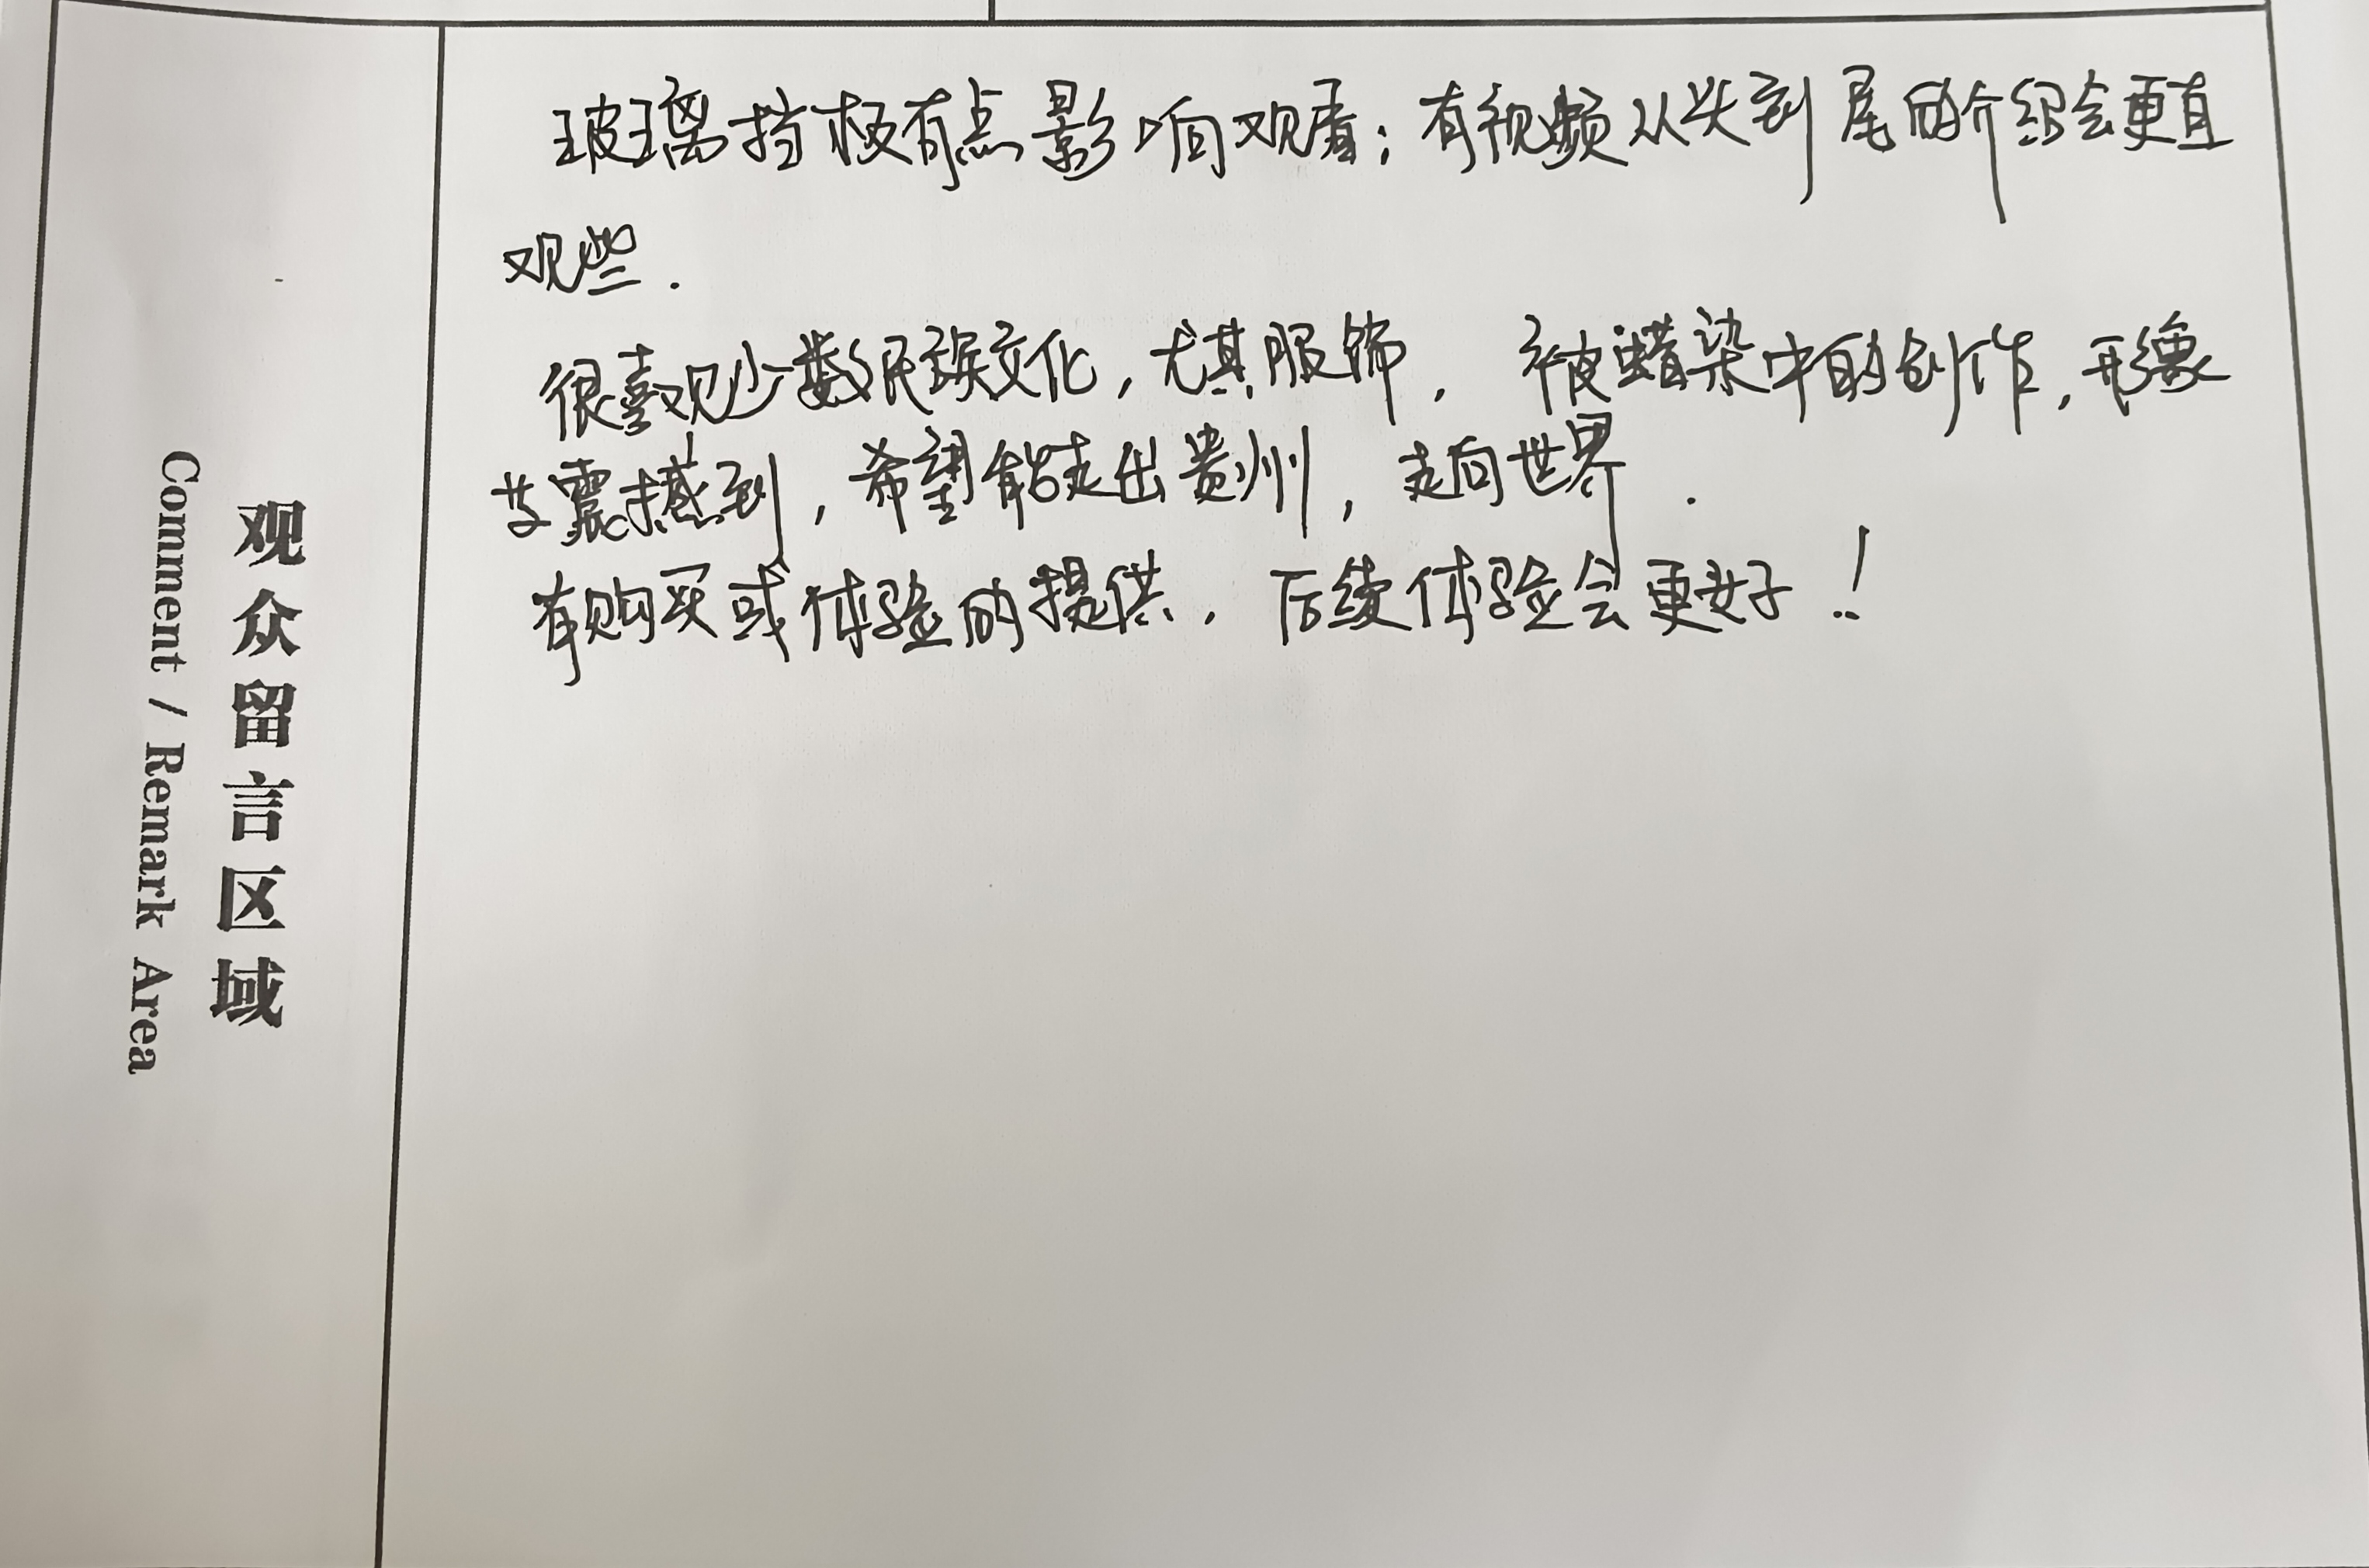 观众留言区域
Comment / Remark Area
玻璃挡板有点影响观看；有视频从头到尾的介绍会更直
观些.
很喜观少数民族文化，尤其服饰，被蜡染中的创作，形象
震撼到，希望能走出贵州，走向世界.
有购买或体验的提供，后续体验会更好！